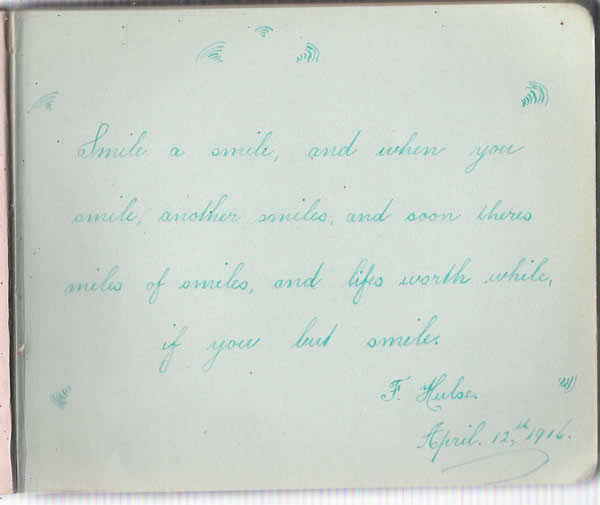 Smile a smile, and when you
smile, another smiles, and soon theres
miles of smiles, and lifes worth while,
if you but smile.
F. Hulse.
April. 12,th 1916.